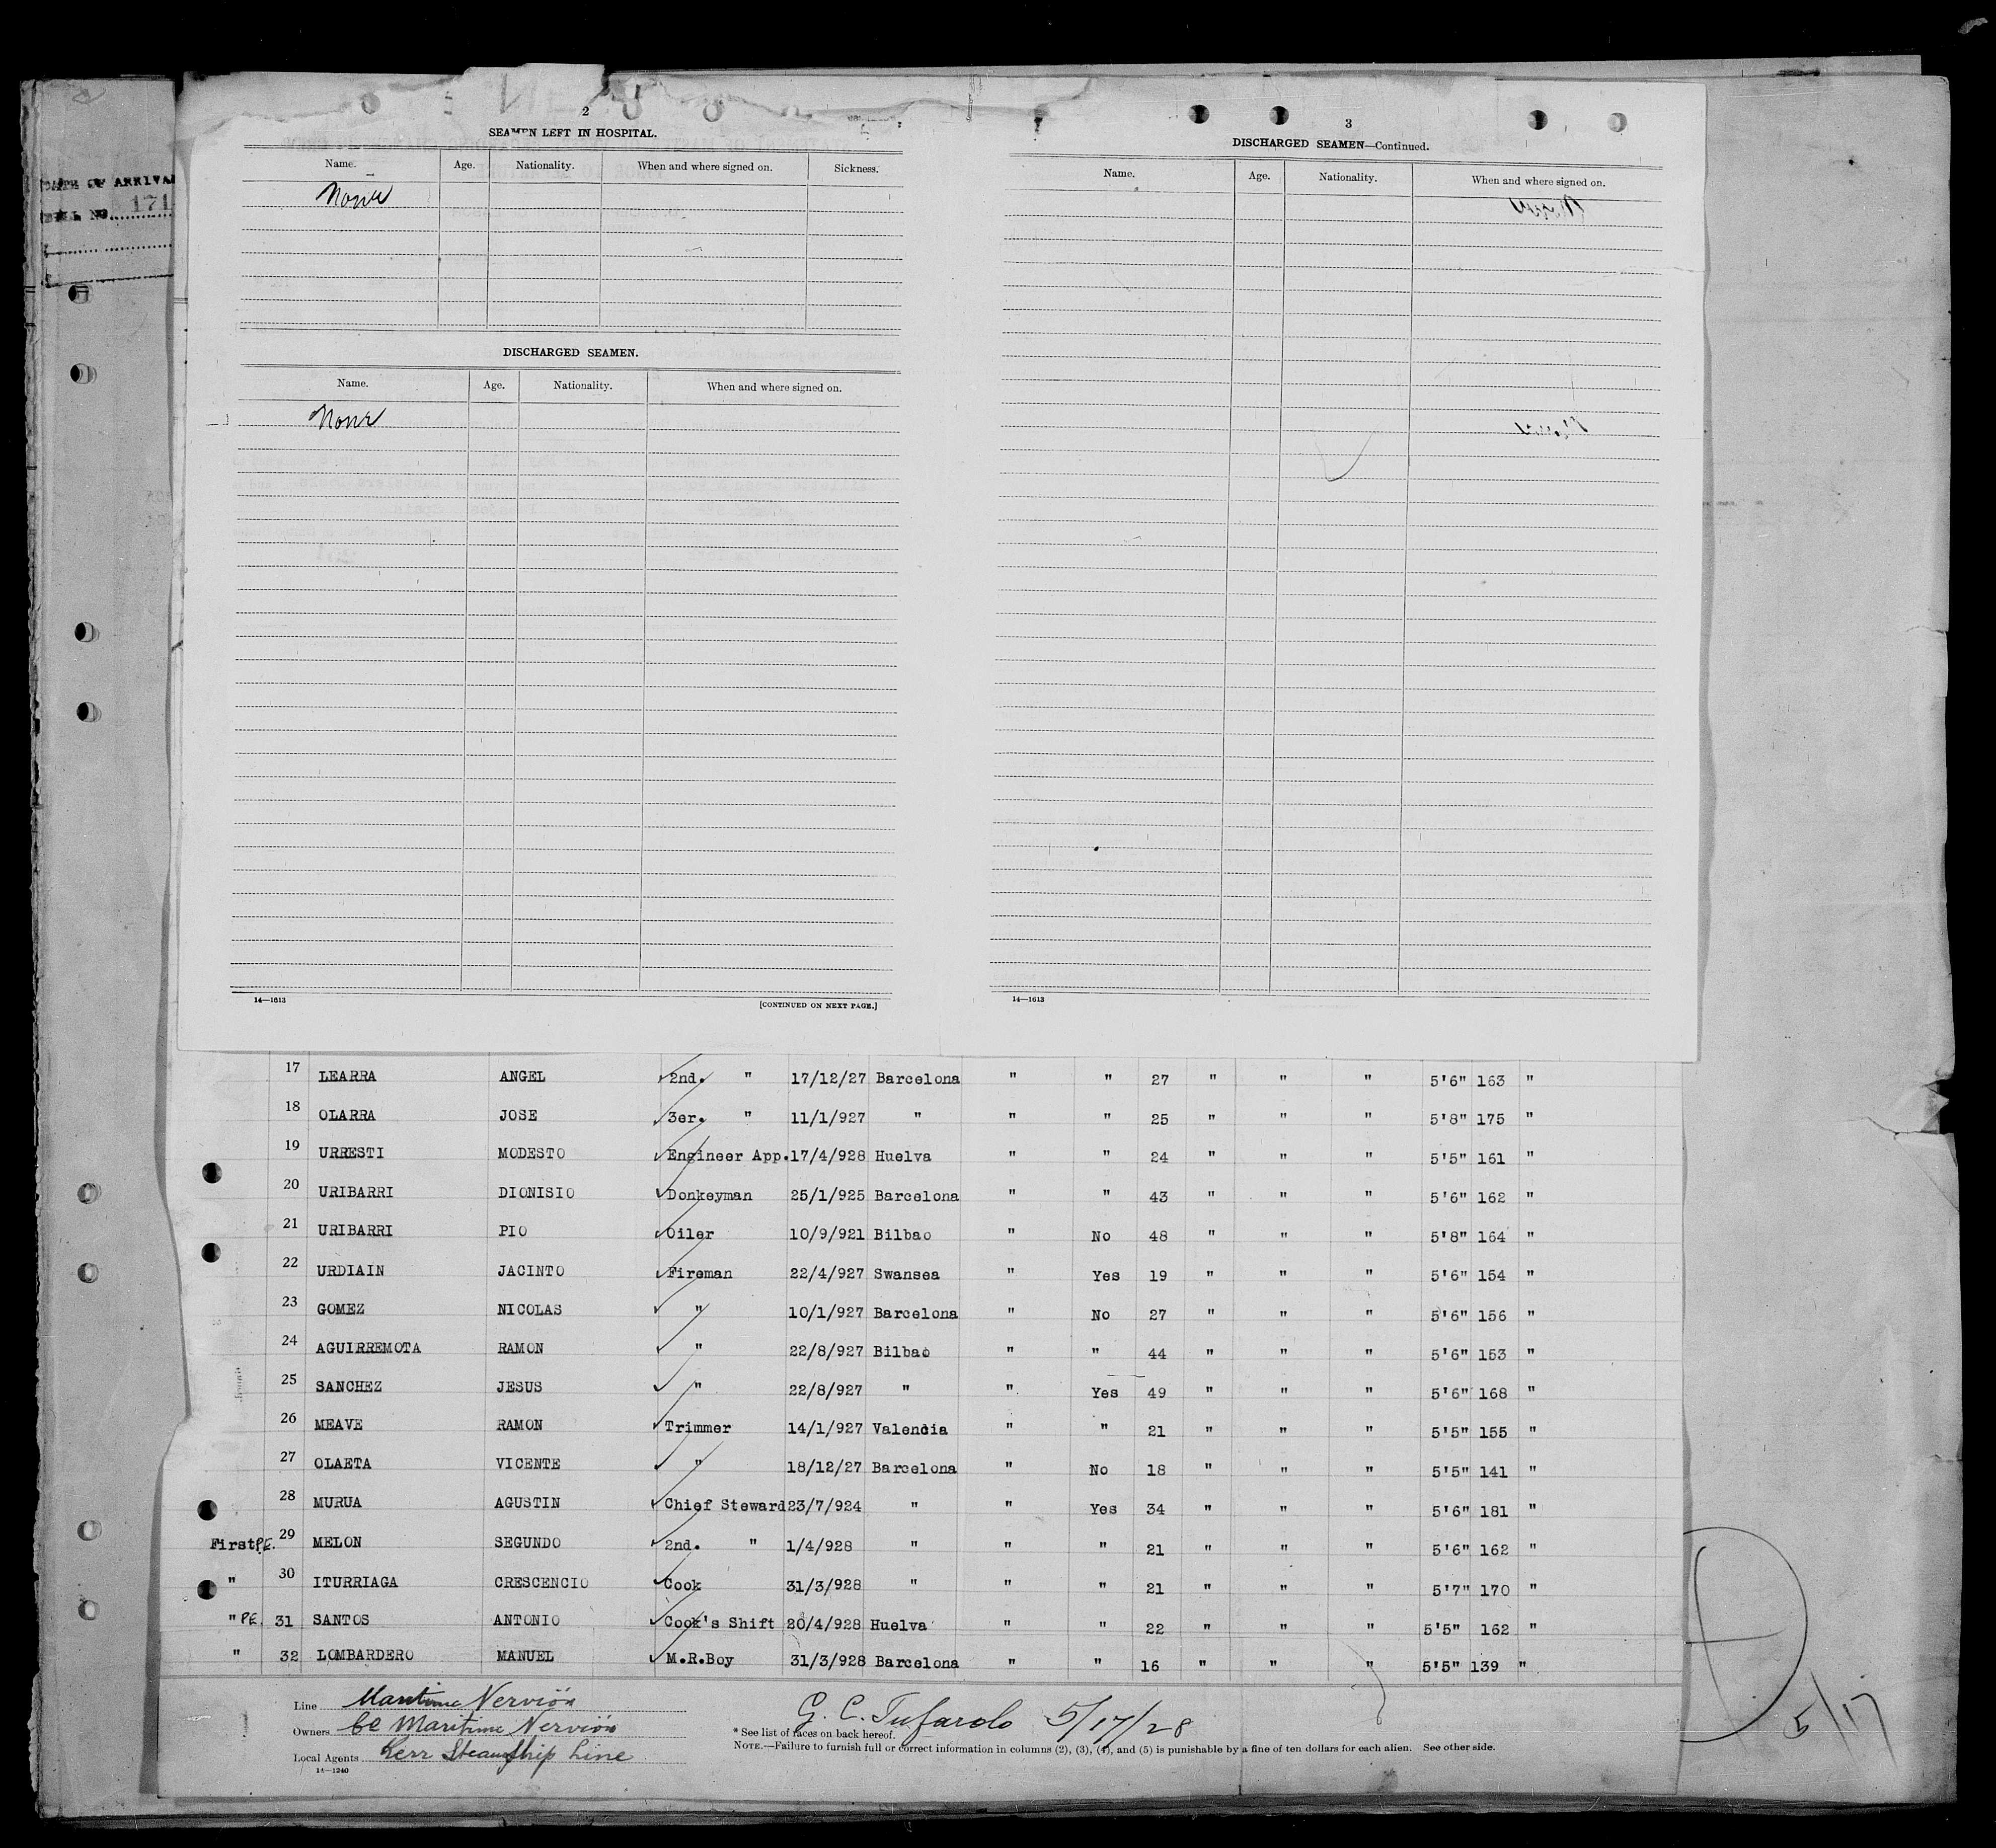 DATE OF ARRIVAL
BILL NO. 171
2
SEAMEN LEFT IN HOSPITAL.
Name. Age. Nationality. When and where signed on. Sickness.
None
DISCHARGED SEAMEN.
Name. Age. Nationality. When and where signed on.
None
14—1613 [CONTINUED ON NEXT PAGE.]
3
DISCHARGED SEAMEN—Continued.
Name. Age. Nationality. When and where signed on.
14—1613
17 LEARRA ANGEL 2nd. " 17/12/27 Barcelona " " 27 " " " 5'6" 163 "
18 OLARRA JOSE 3er. " 11/1/927 " " " 25 " " " 5'8" 175 "
19 URRESTI MODESTO Engineer App. 17/4/928 Huelva " " 24 " " " 5'5" 161 "
20 URIBARRI DIONISIO Donkeyman 25/1/925 Barcelona " " 43 " " " 5'6" 162 "
21 URIBARRI PIO Oiler 10/9/921 Bilbao " No 48 " " " 5'8" 164 "
22 URDIAIN JACINTO Fireman 22/4/927 Swansea " Yes 19 " " " 5'6" 154 "
23 GOMEZ NICOLAS " 10/1/927 Barcelona " No 27 " " " 5'6" 156 "
24 AGUIRREMOTA RAMON " 22/8/927 Bilbao " " 44 " " " 5'6" 153 "
25 SANCHEZ JESUS " 22/8/927 " " Yes 49 " " " 5'6" 168 "
26 MEAVE RAMON Trimmer 14/1/927 Valencia " " 21 " " " 5'5" 155 "
27 OLAETA VICENTE " 18/12/27 Barcelona " No 18 " " " 5'5" 141 "
28 MURUA AGUSTIN Chief Steward 23/7/924 " " Yes 34 " " " 5'6" 181 "
First P.E. 29 MELON SEGUNDO 2nd. " 1/4/928 " " " 21 " " " 5'6" 162 "
" 30 ITURRIAGA CRESCENCIO Cook 31/3/928 " " " 21 " " " 5'7" 170 "
" P.E. 31 SANTOS ANTONIO Cook's Shift 20/4/928 Huelva " " 22 " " " 5'5" 162 "
" 32 LOMBARDERO MANUEL M.R.Boy 31/3/928 Barcelona " " 16 " " " 5'5" 139 "
Line Maritime Nervión
Owners Ce Maritime Nervión
Local Agents Kerr Steamship Line
14—1240
G. C. Tufarolo 5/17/28
* See list of races on back hereof.
NOTE.—Failure to furnish full or correct information in columns (2), (3), (4), and (5) is punishable by a fine of ten dollars for each alien. See other side.
5/17